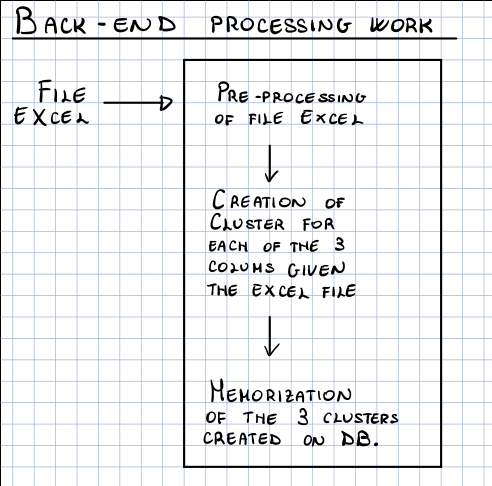 BACK-END PROCESSING WORK
FILE
EXCEL
PRE-PROCESSING
OF FILE EXCEL
CREATION OF
CLUSTER FOR
EACH OF THE 3
COLUMS GIVEN
THE EXCEL FILE
MEMORIZATION
OF THE 3 CLUSTERS
CREATED ON DB.